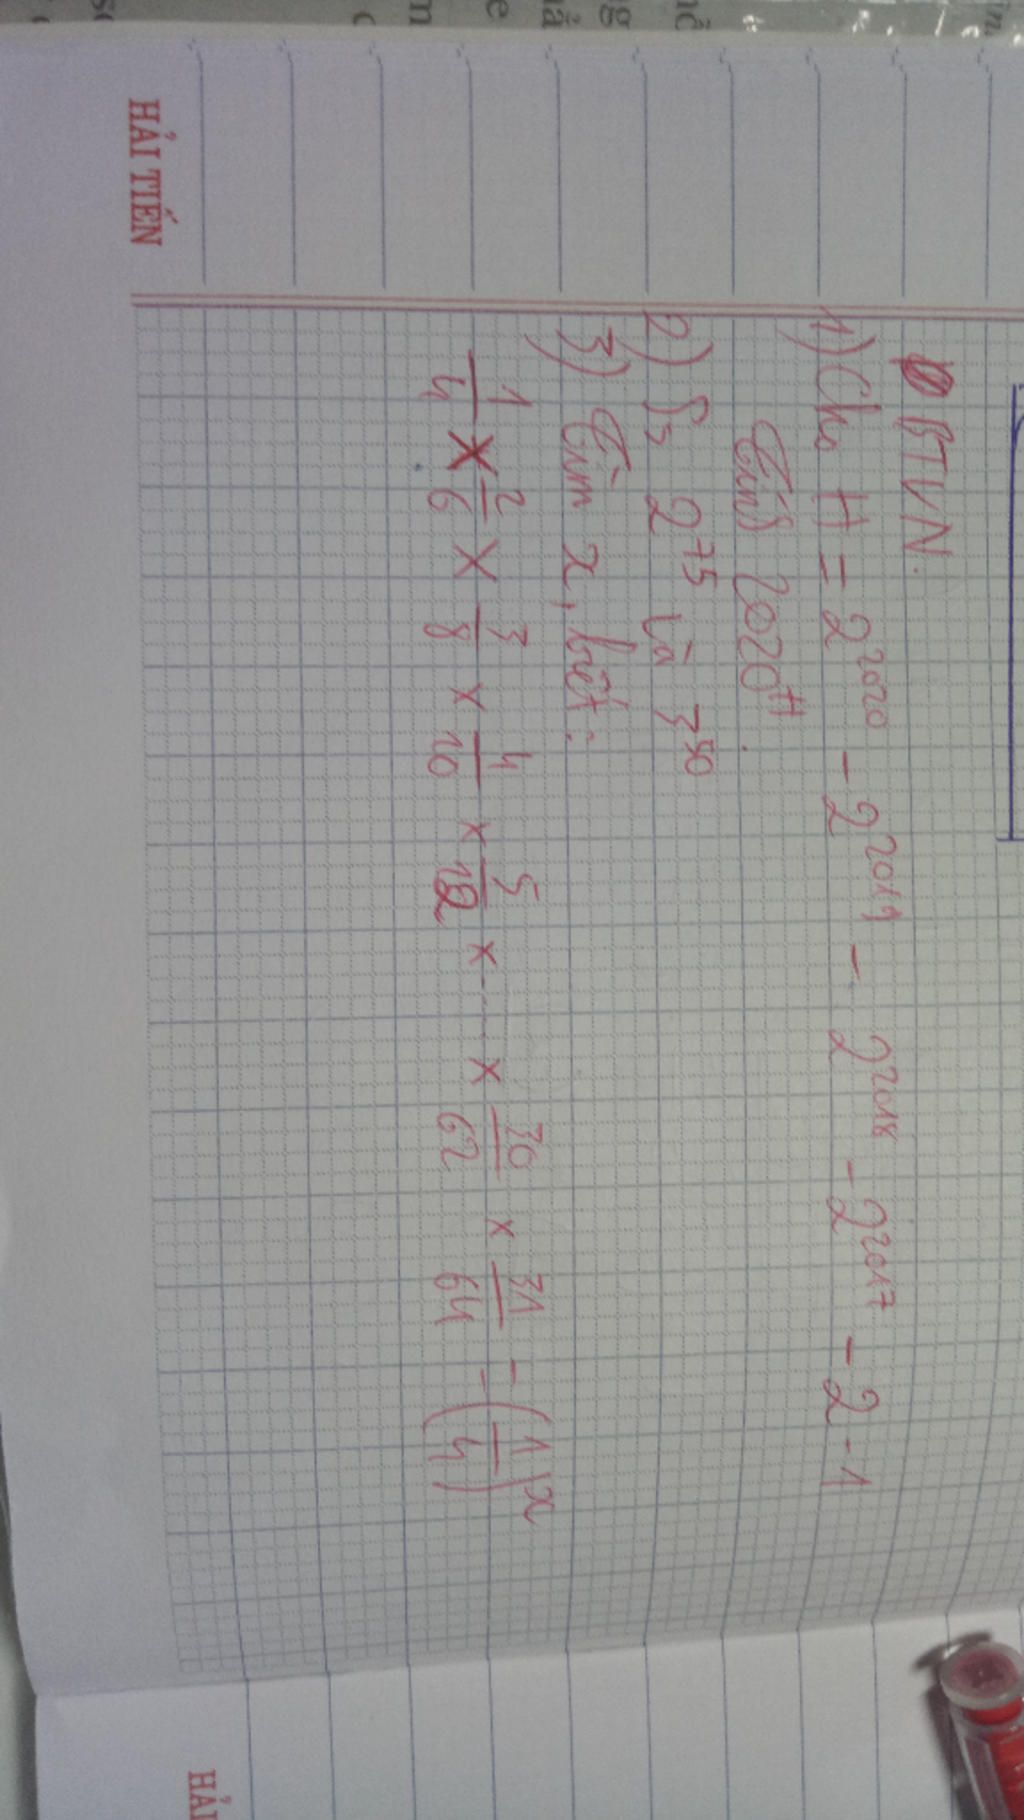 HẢI TIẾN
BTVN.
1) Cho H = 2²⁰²⁰ - 2²⁰¹⁹ - 2²⁰¹⁸ - 2²⁰¹⁷ - 2 - 1
Tính 2020ᴴ.
2) So 2⁷⁵ và 3⁵⁰
3) Tìm x, biết:
1/4 × 2/6 × 3/8 × 4/10 × 5/12 × .... × 30/62 × 31/64 = (1/4)ˣ
HẢI